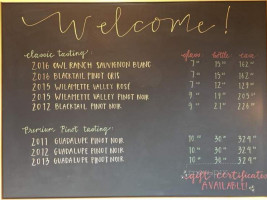 Welcome!
classic tasting: glass bottle case
2016 OWL RANCH SAUVIGNON BLANC 7 15 162
2016 BLACKTAIL PINOT GRIS 7 15 162
2015 WILLAMETTE VALLEY ROSÉ 7
2015 WILLAMETTE VALLEY PINOT NOIR 9
2012 BLACKTAIL PINOT NOIR 9 21 226
Premium Pinot tasting:
2011 GUADALUPE PINOT NOIR 10 30 324
2012 GUADALUPE PINOT NOIR 10 30 324
2013 GUADALUPE PINOT NOIR 10 30 324
gift certificates
AVAILABLE!